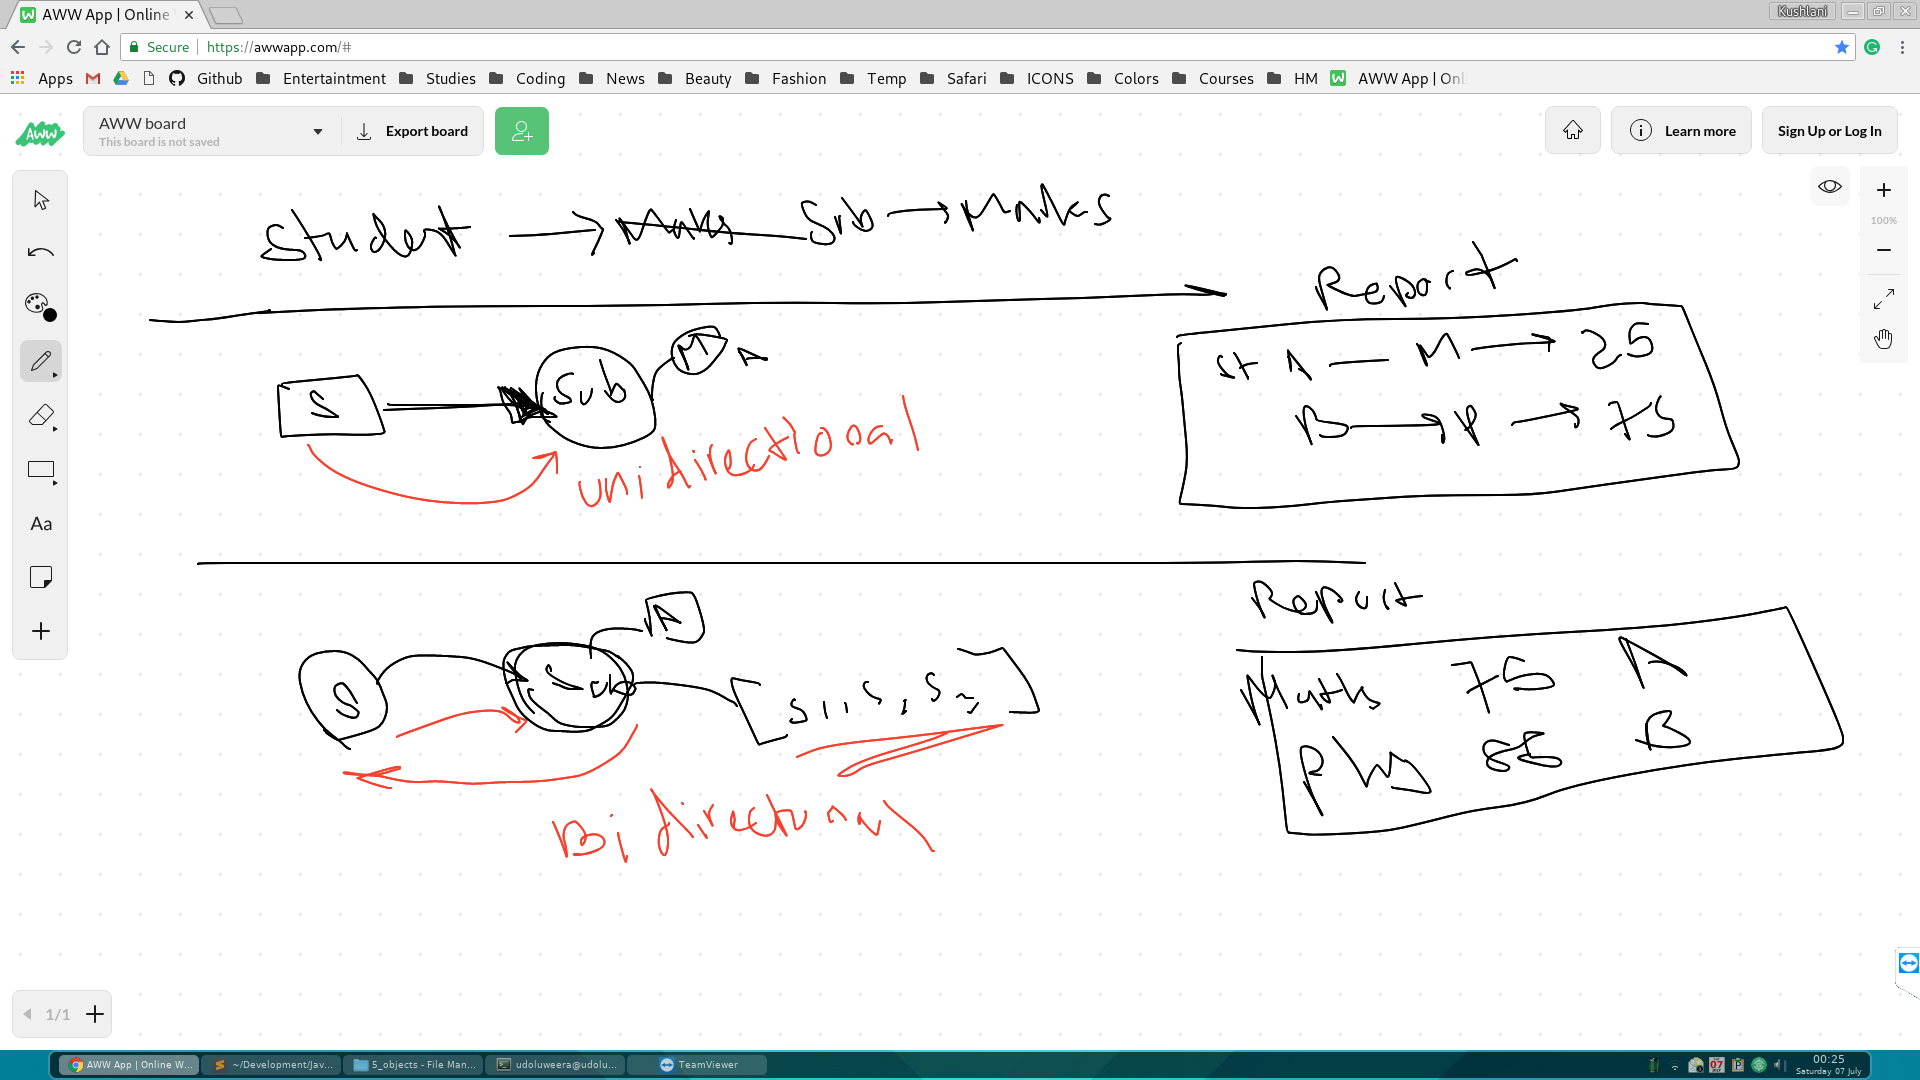 AWW App | Online
Kushlani
Secure https://awwapp.com/#
Apps Github Entertaintment Studies Coding News Beauty Fashion Temp Safari ICONS Colors Courses HM AWW App | Onl
AWW board
This board is not saved
Export board
Learn more
Sign Up or Log In
100%
Student → Sub → Marks
Report
St A — M → 25
B → P → 75
S
Sub
M
A
unidirectional
Report
S
Sub
A
Maths 75 A
Phy 85 B
Bi directional
Aa
1/1
AWW App | Online W...
~/Development/Jav...
5_objects - File Man...
udoluweera@udolu...
TeamViewer
00:25
Saturday 07 July